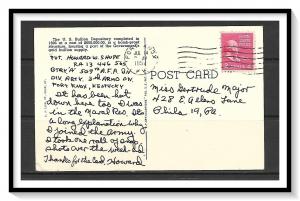 The U. S. Bullion Depository completed in
1936 at a cost of $560,000.00, is a bomb-proof
structure, housing a part of the Government's
gold bullion supply.
PVT. HOWARD W. SHUPE
RA 13 446 525
BTRY A 509th A.F.A. BN.
DIV. ARTY. 3rd ARMD DIV.
FORT KNOX, KENTUCKY
It has been hot
down here too. I was
in the Naval Res. It's
a long explanation why
I joined the army.
I took one roll of snap
shots over the week-end
Thanks for the card Howard
POST CARD
Miss Gertrude Major
428 E. Lane
Phila 19, Pa.